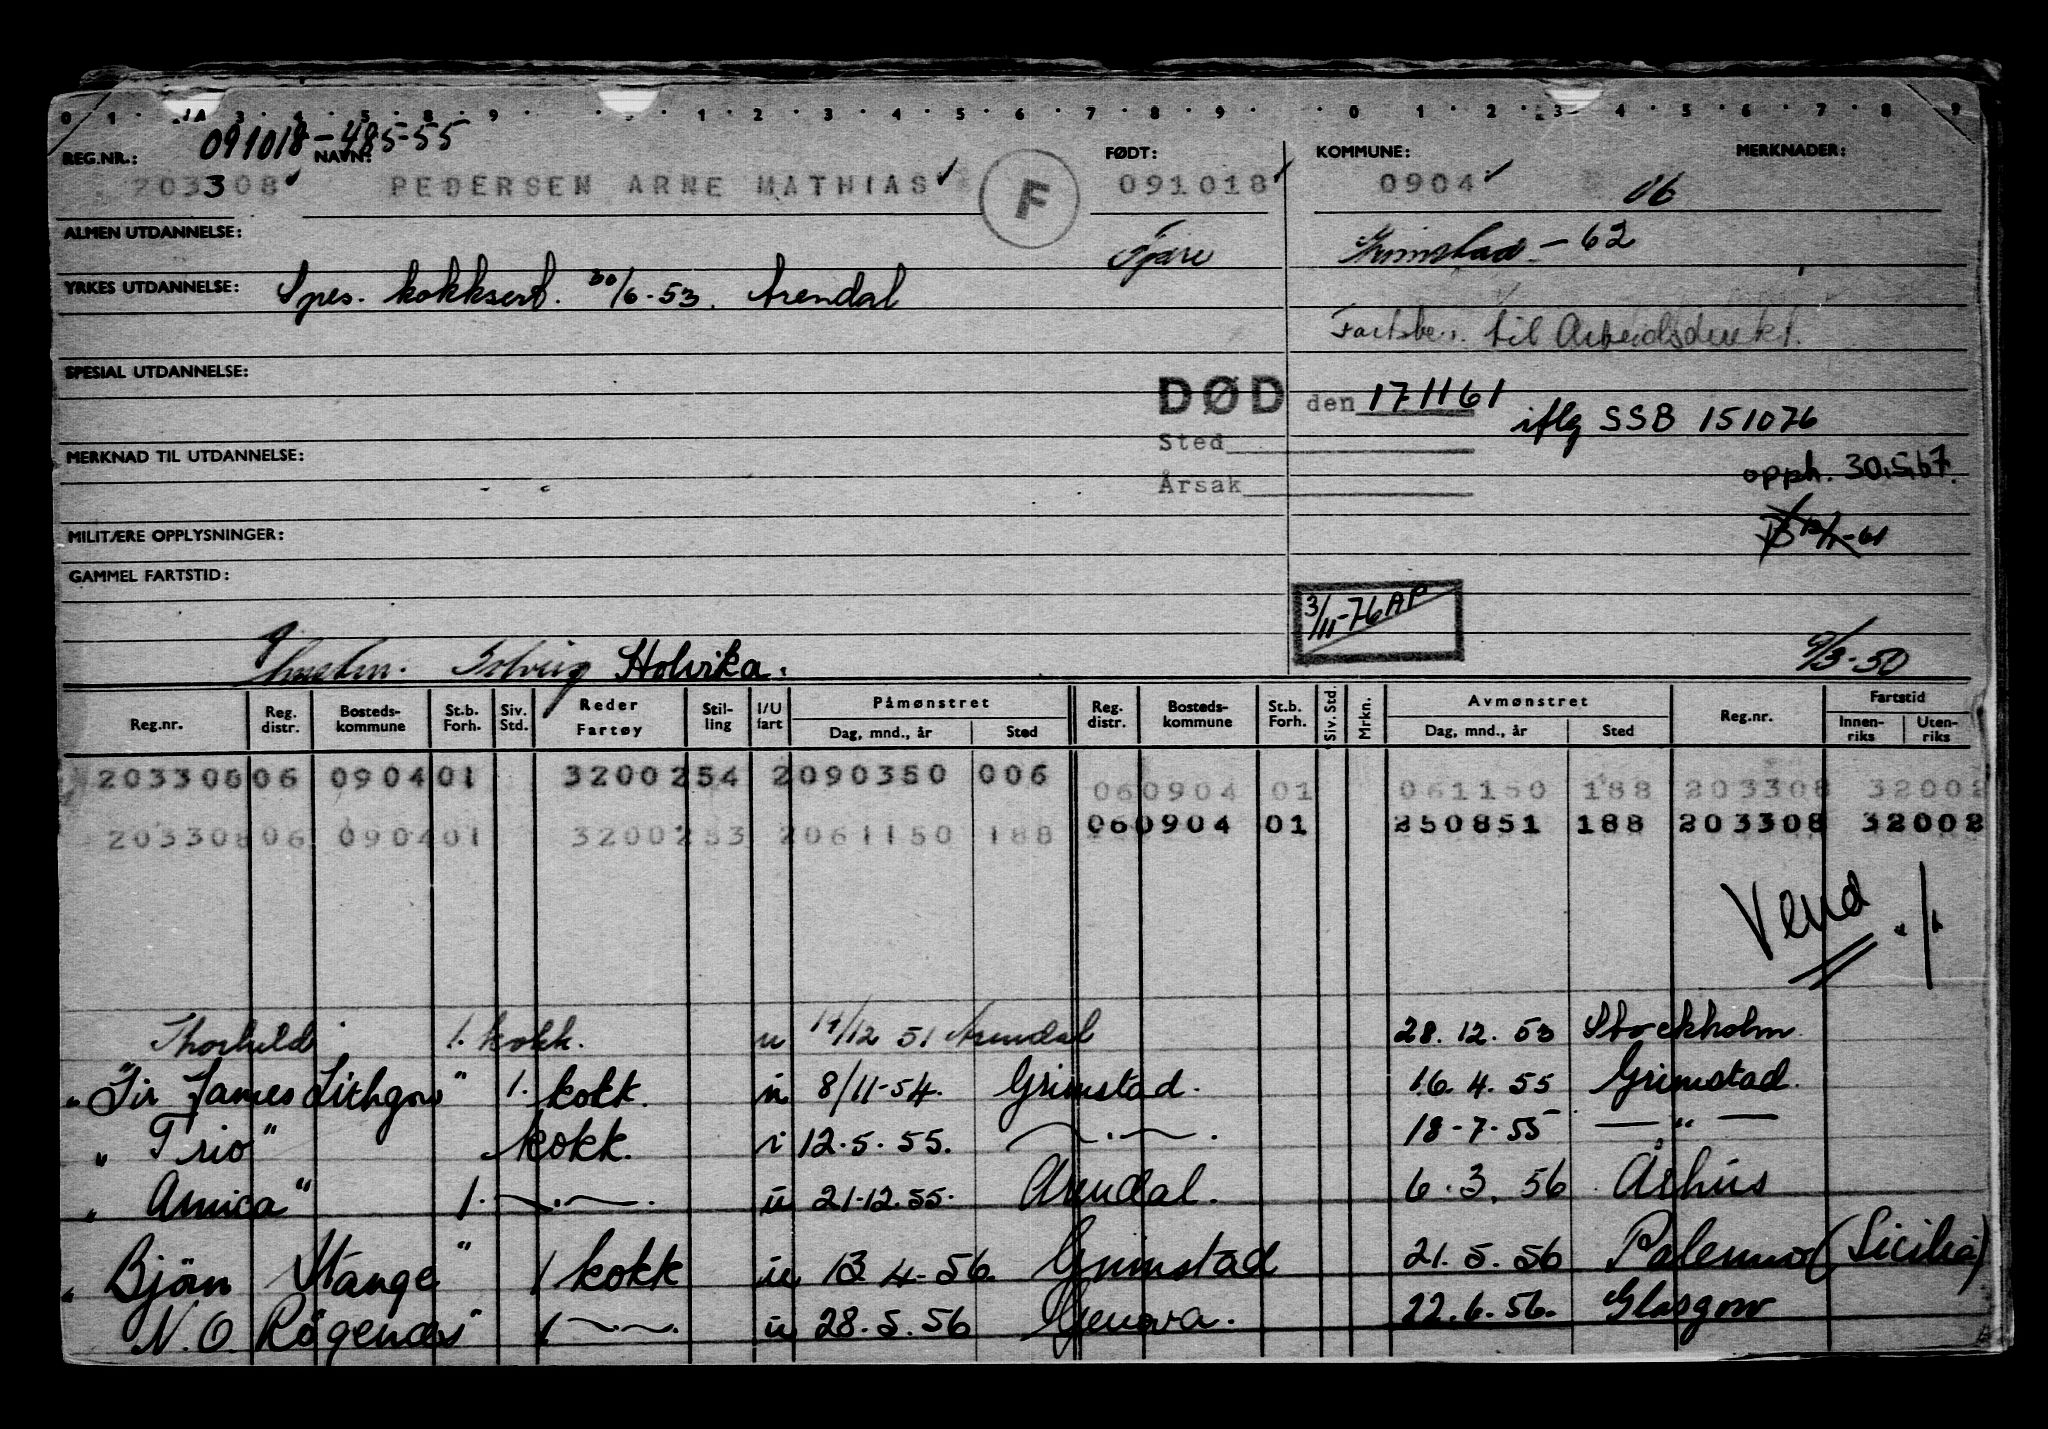 0 1 · 1A 3 · 4 · 5 · 8 · 9 · · · 1 · 2 · 3 · 4 · 5 · 6 · 7 · 8 · 9 · · 0 · 1 · 2 · 3 · 4 · 5 · 6 · 7 · 8 · 9
091018-485-55
REG.NR.: NAVN: FØDT: KOMMUNE: MERKNADER:
203308 PEDERSEN ARNE MATHIAS F 091018 0904 06
ALMEN UTDANNELSE: Fjære Grimstad - 62
YRKES UTDANNELSE: Spes. kokksert. 30/6-53. Arendal
Fartsbe. til Arbeidsdirekt.
SPESIAL UTDANNELSE:
DØD den 171161
iflg SSB 151076
Sted
MERKNAD TIL UTDANNELSE: opph. 30.5.67.
Årsak
MILITÆRE OPPLYSNINGER:
GAMMEL FARTSTID:
3/11-76 AP
Solveig Holvika. 9/3-50
Reg.nr. Reg. distr. Bosteds- kommune St.b. Forh. Siv. Std. Reder Fartøy Stil- ling I/U fart Påmønstret Dag, mnd., år Sted Reg. distr. Bosteds- kommune St.b. Forh. Siv. Std. Mrkn. Avmønstret Dag, mnd., år Sted Reg.nr. Fartstid Innen- riks Uten- riks
203308 06 0904 01 32002 54 2 090350 006 06 0904 01 061150 188 203308 32002
203308 06 0904 01 32002 53 2 061150 188 06 0904 01 250851 188 203308 32002
Vend ./.
Thorhild 1. kokk. u 14/12 51 Arendal 28.12.53 Stockholm
"Sir James Lithgow" 1. kokk. u 8/11-54. Grimstad. 16.4.55 Grimstad.
"Trio" kokk. i 12.5.55. —·—. 18-7-55 — " —
"Amica" 1. —·—. u 21.12.55. Arendal. 6.3.56 Århus
"Bjørn Stange" 1 kokk u 13.4.56. Grimstad 21.5.56 Palermo (Sicilia)
N.O. Rögenæs" 1 —·—. u 28.5.56 Genova. 22.6.56. Glasgow